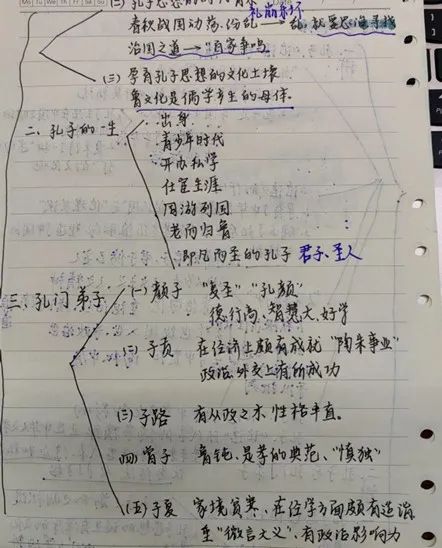 礼崩乐坏
春秋战国动荡、纷乱→乱,就要思治寻找
治国之道→"百家争鸣"
(三) 孕育孔子思想的文化土壤
鲁文化是儒学产生的母体
二、孔子的一生
出身
青少年时代
开办私学
仕宦生涯
周游列国
老而归鲁
即凡而圣的孔子 君子、至人
三、孔门弟子
(一) 颜子 "复圣" "孔颜"
德行高、智慧大、好学
(二) 子贡 在经济上颇有成就 "陶朱事业"
政治、外交上有所成功
(三) 子路 有从政之术、性格率直。
(四) 曾子 鲁钝、是孝的典范、"慎独"
(五) 子夏 家境贫寒、在经学方面颇有造诣
重"微言大义"、有政治影响力